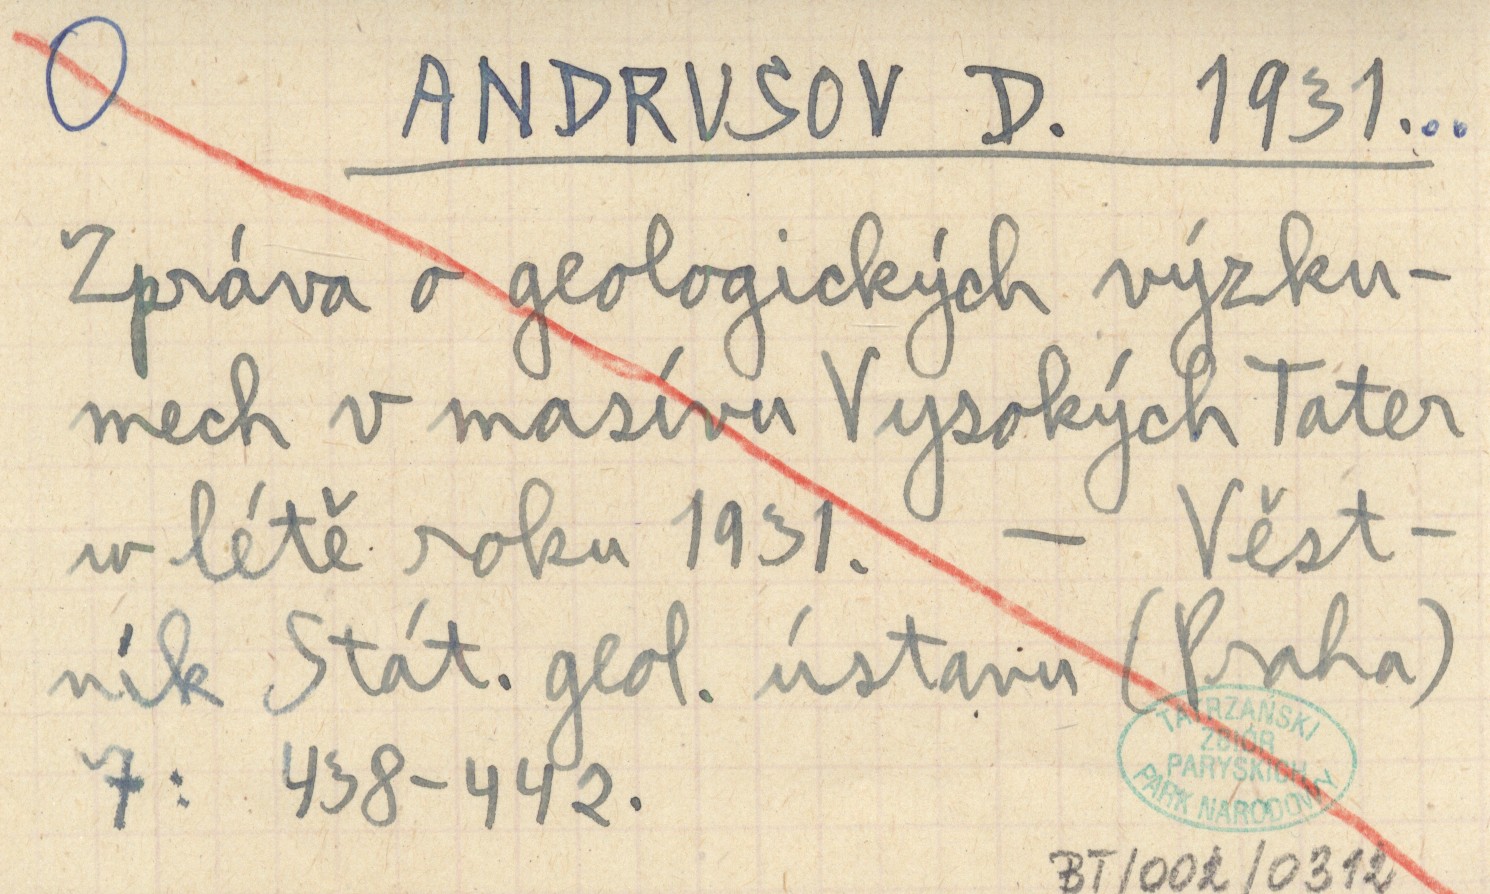 ANDRUSOV D. 1931...
Zpráva o geologických výzku-
mech v masívu Vysokých Tater
w létě roku 1931. — Věst-
ník Stát. geol. ústavu (Praha)
7: 438-442.
TATRZAŃSKI
ZBIÓR
PARYSKICH
PARK NARODOWY
BT/002/0312